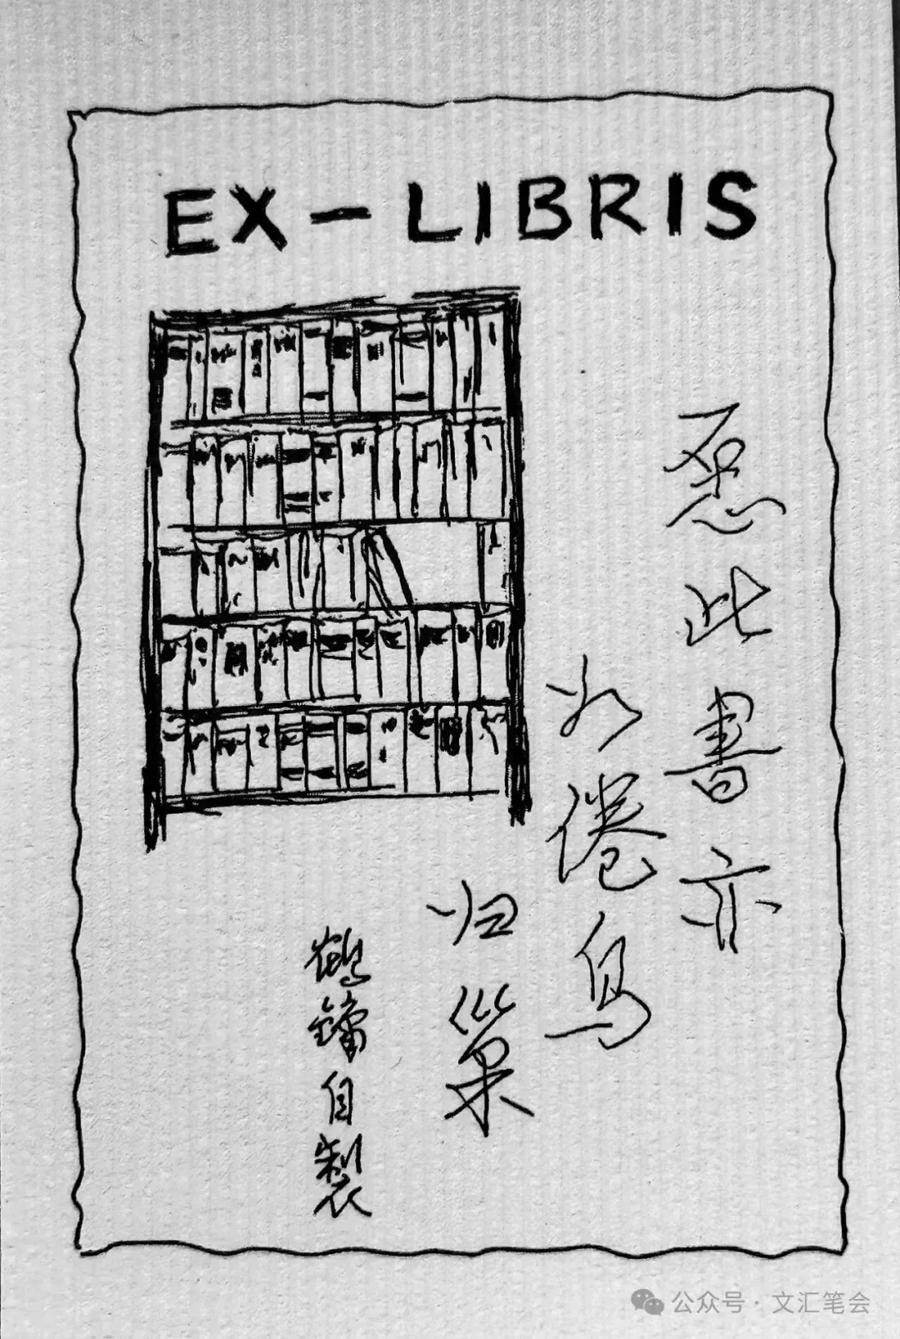 EX-LIBRIS
愿此書亦
倦鸟
归巢
鹤自製
公众号·文汇笔会